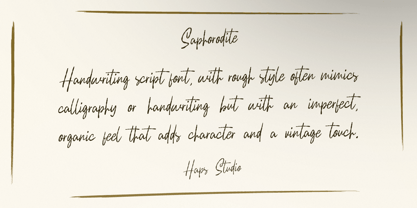 Saphorodite
Handwriting script font, with rough style often mimics
calligraphy or handwriting but with an imperfect,
organic feel that adds character and a vintage touch.
Haps Studio